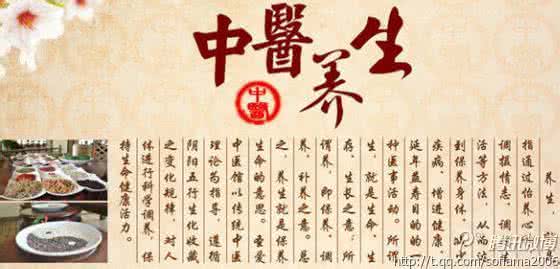 中醫养生
中醫
养生
指通过怡养心
调摄情志、调
活等方法,从而
到保养身体、减少
疾病、增进健康、
延年益寿目的的一
种医事活动。所谓
生,就是生命、生
存、生长之意;所
谓养,即保养、调
养、补养之意。总
之,养生就是保养
生命的意思。圣爱
中医馆以传统中医
理论为指导,遵循
阴阳五行生化收藏
之变化规律,对人
体进行科学调养,保
持生命健康活力。
腾讯微博
http://t.qq.com/sofiama2006